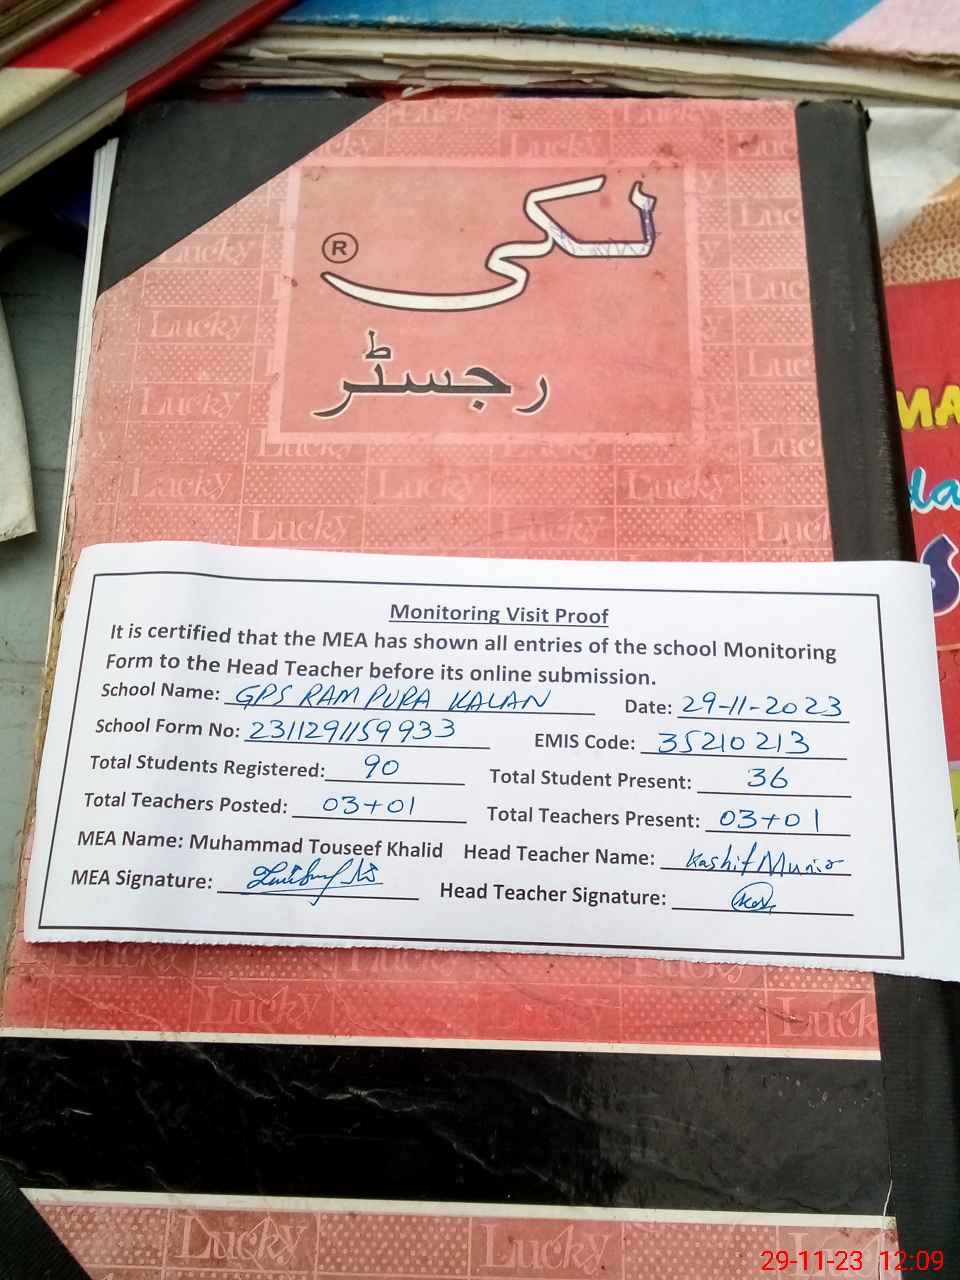 لکی
®
رجسٹر
Monitoring Visit Proof
It is certified that the MEA has shown all entries of the school Monitoring
Form to the Head Teacher before its online submission.
School Name: GPS RAM PURA KALAN Date: 29-11-2023
School Form No: 231129115 9933 EMIS Code: 35210213
Total Students Registered: 90 Total Student Present: 36
Total Teachers Posted: 03+01 Total Teachers Present: 03+01
MEA Name: Muhammad Touseef Khalid Head Teacher Name: Kashif Munir
MEA Signature: Head Teacher Signature:
Lucky Lucky
29-11-23 12:09